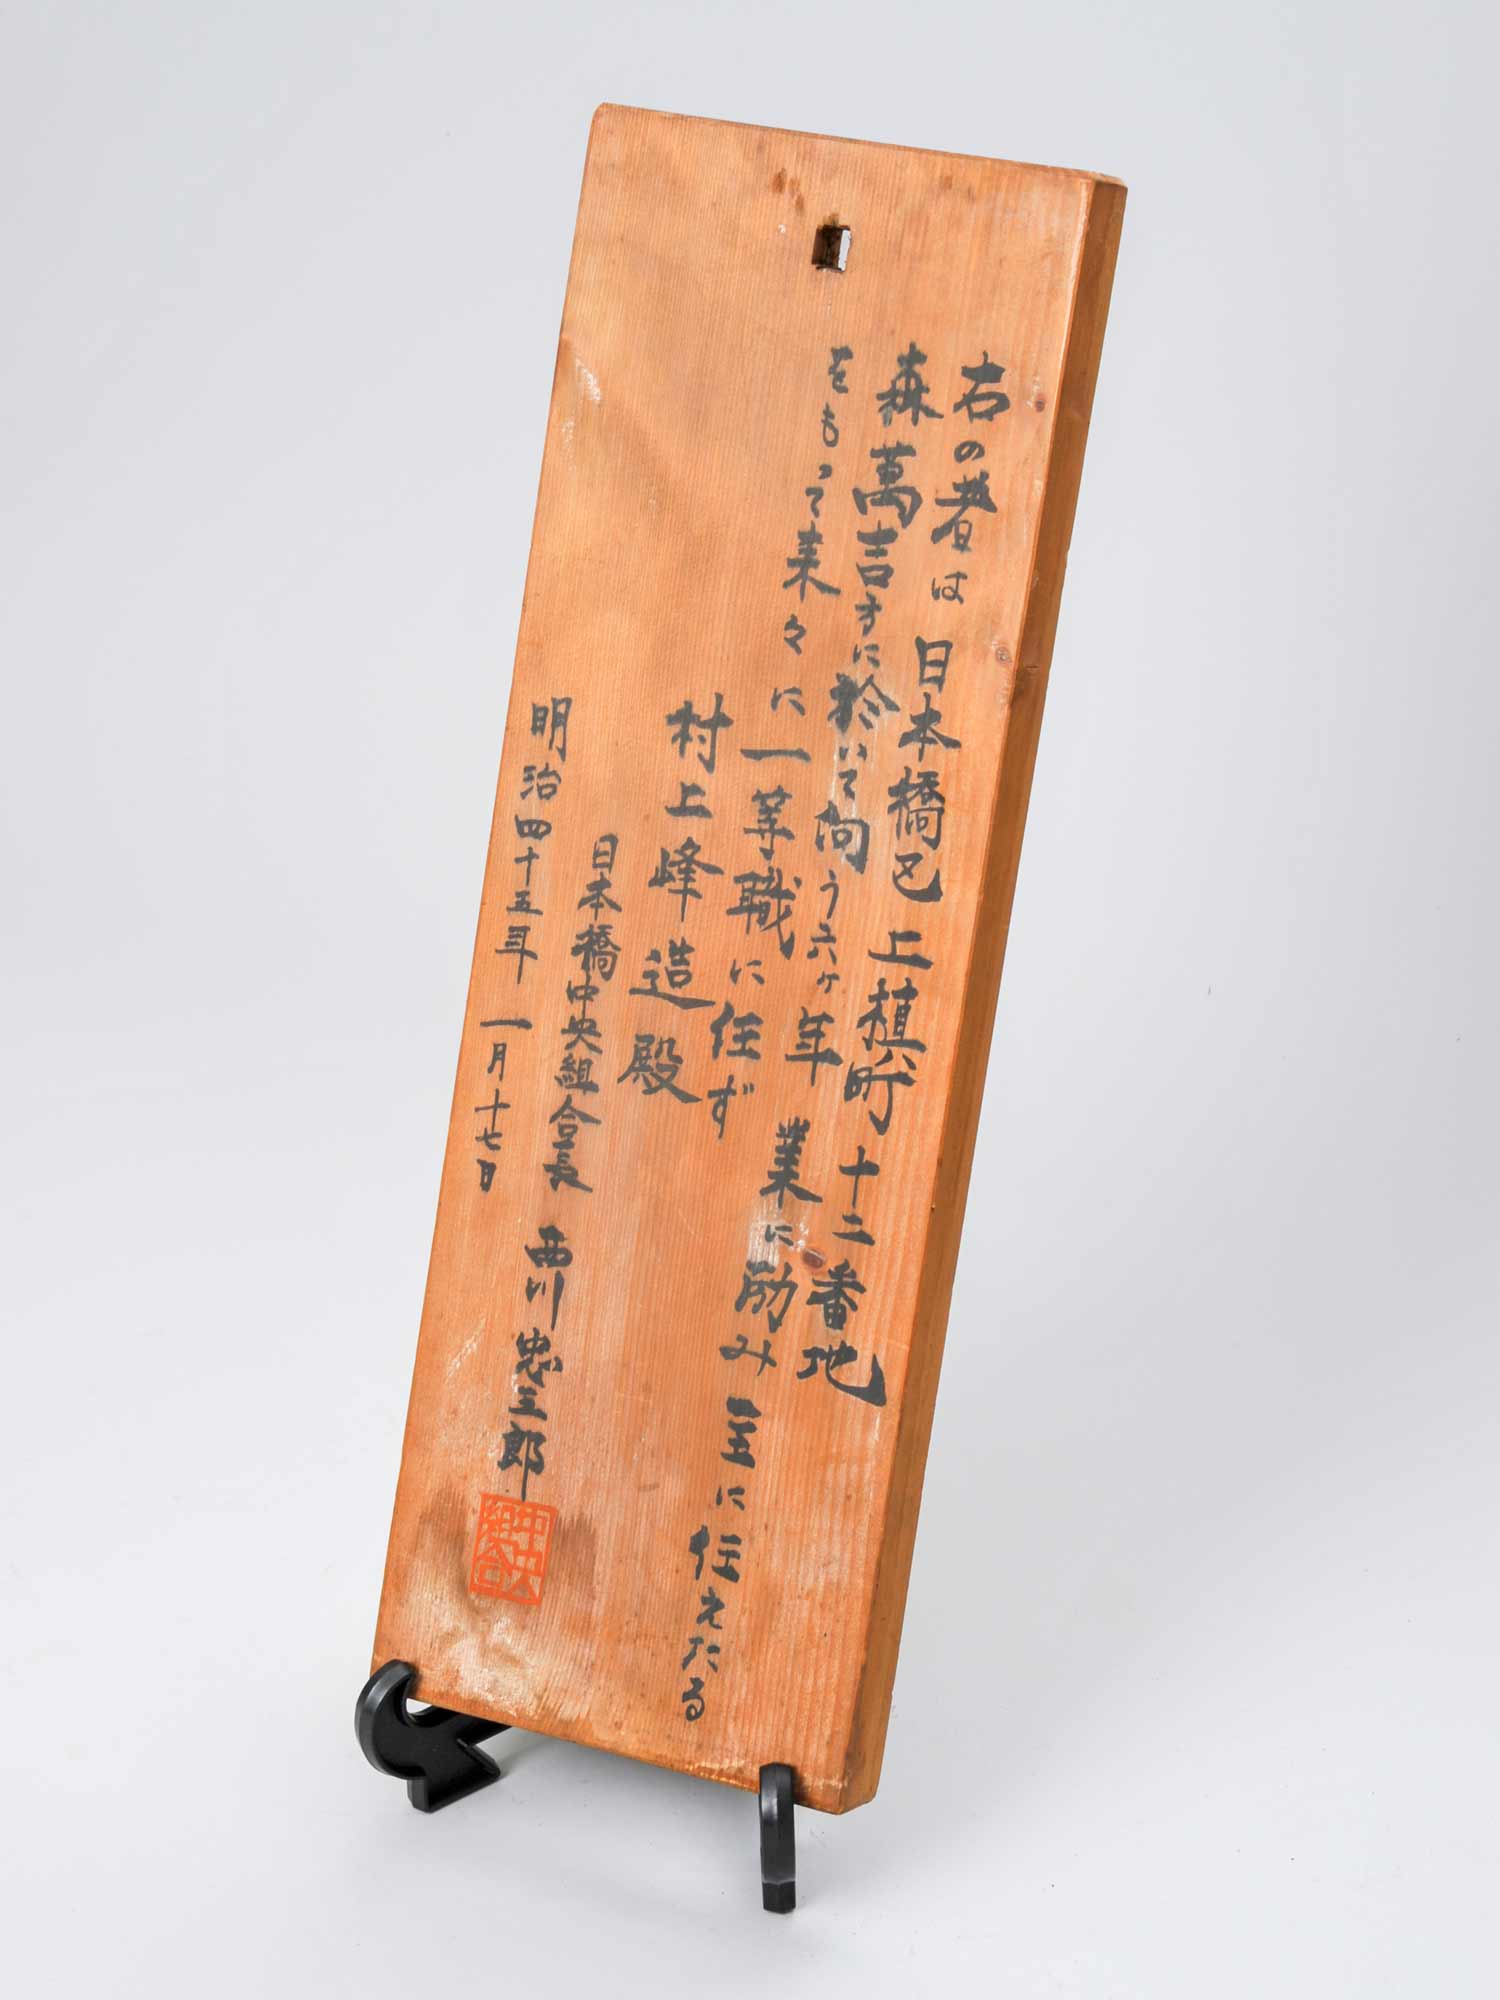 右の者は 日本橋区 上植町 十二番地
森萬吉方に於いて向う六ヶ年 業に励み 主に仕えたる
をもって来々に一等職に任ず
村上峰造殿
日本橋中央組合長 西川忠三郎
明治四十五年 一月十七日
中央組合